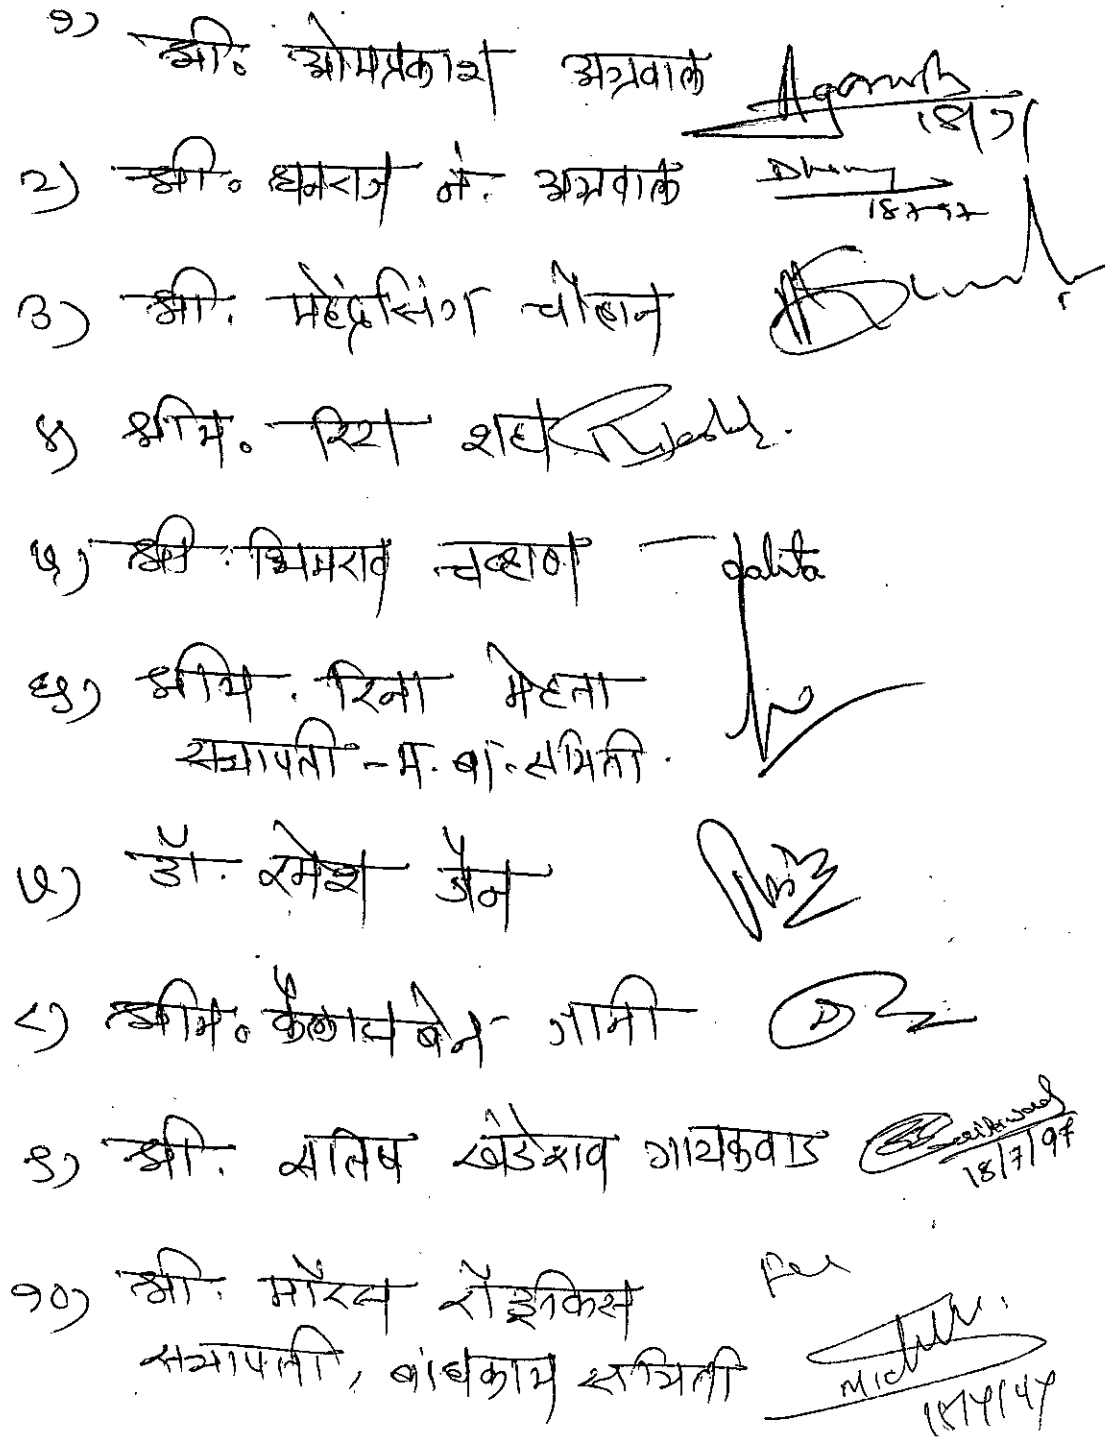 १) श्री. ओमप्रकाश अग्रवाल
18/7/
२) श्री. धनराज ने. अग्रवाल
18-7-97
३) श्री. महेंद्रसिंग चौहान
४) श्रीम. रिटा शहा
५) श्री. भिमराव चव्हाण
lalita
६) श्रीम. रिना मेहता
सभापती - म. बा. समिती.
७) डॉ. रमेश जैन
८) श्रीम. कैलासबेन जानी
९) श्री. सतिष खंडेराव गायकवाड
18/7/97
१०) श्री. मॉरस रॉड्रिक्स
सभापती, बांधकाम समिती